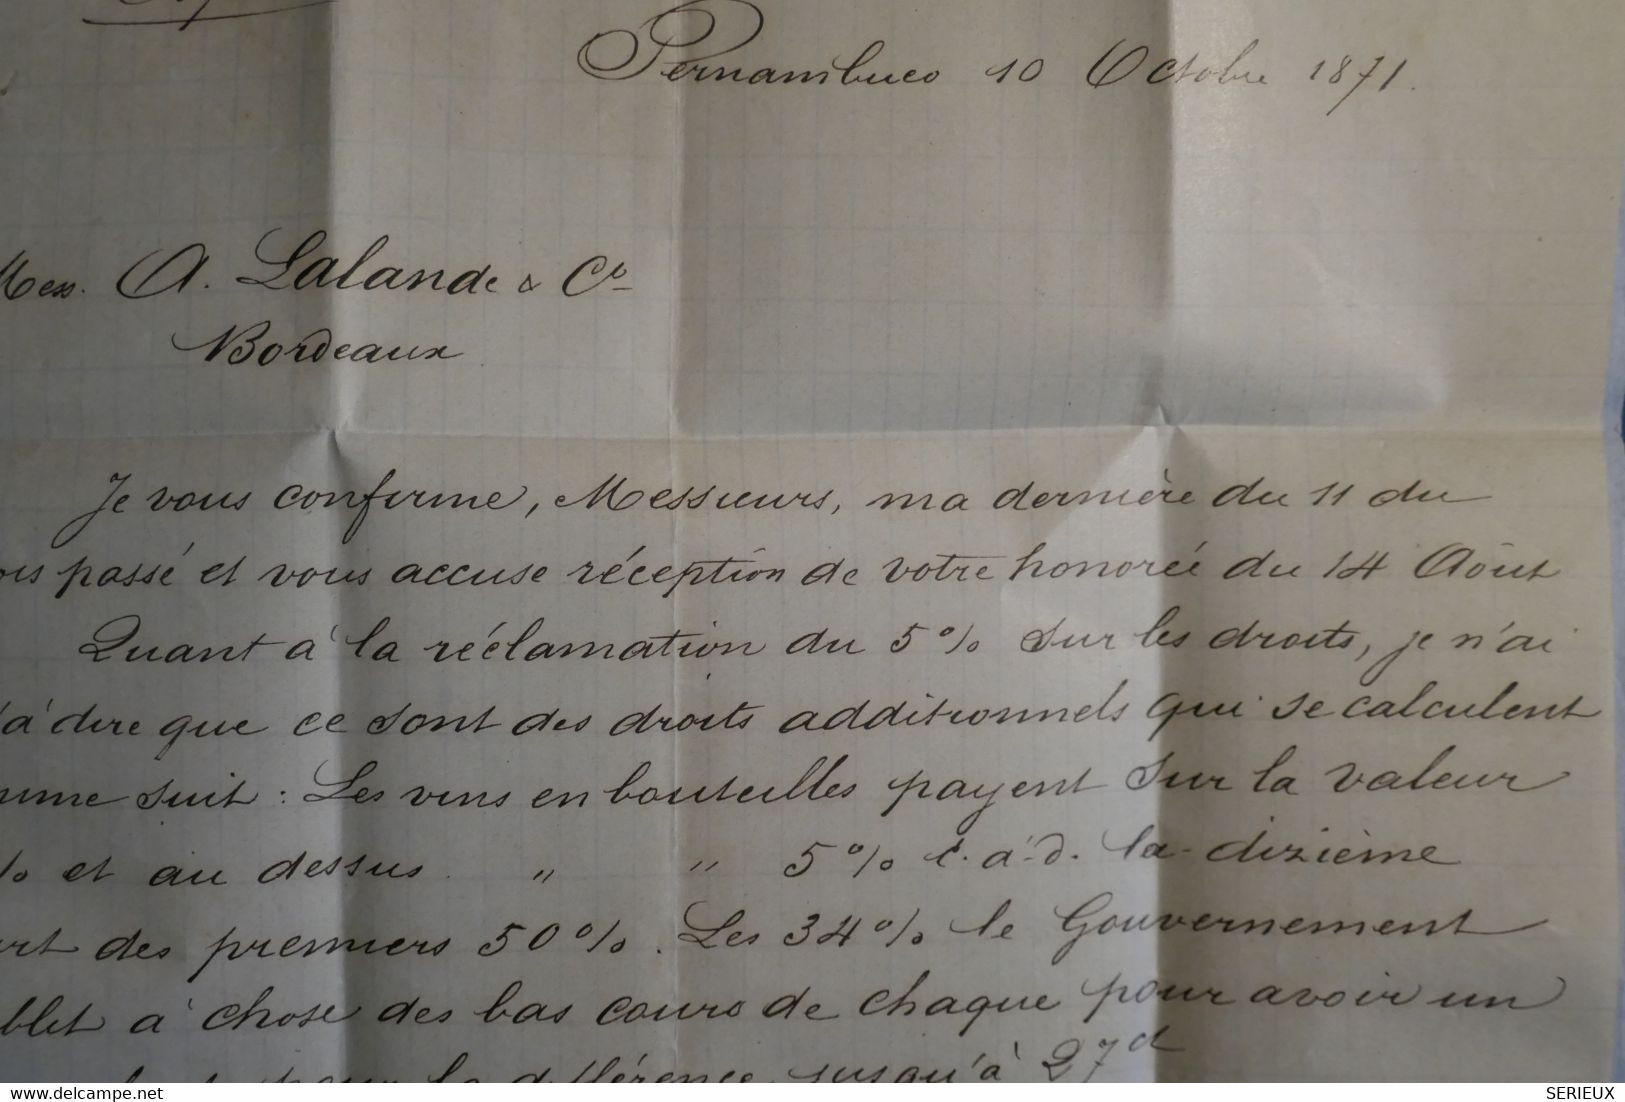 Pernambuco 10 Octobre 1871.
Mess. A. Lalande & Co
Bordeaux
Je vous confirme, Messieurs, ma dernière du 11 du
ois passé et vous accuse réception de votre honorée du 14 Aôut
Quant à la réclamation du 5% sur les droits, je n'ai
'à dire que ce sont des droits additionnels qui se calculent
mme suit : Les vins en bouteilles payent sur la valeur
% et au dessus " " 5% c.à.d. la dizième
rt des premiers 50%. Les 34% le Gouvernement
blit à chose des bas cours de chaque pour avoir un
pour la différence jusqu'à 27d
SERIEUX